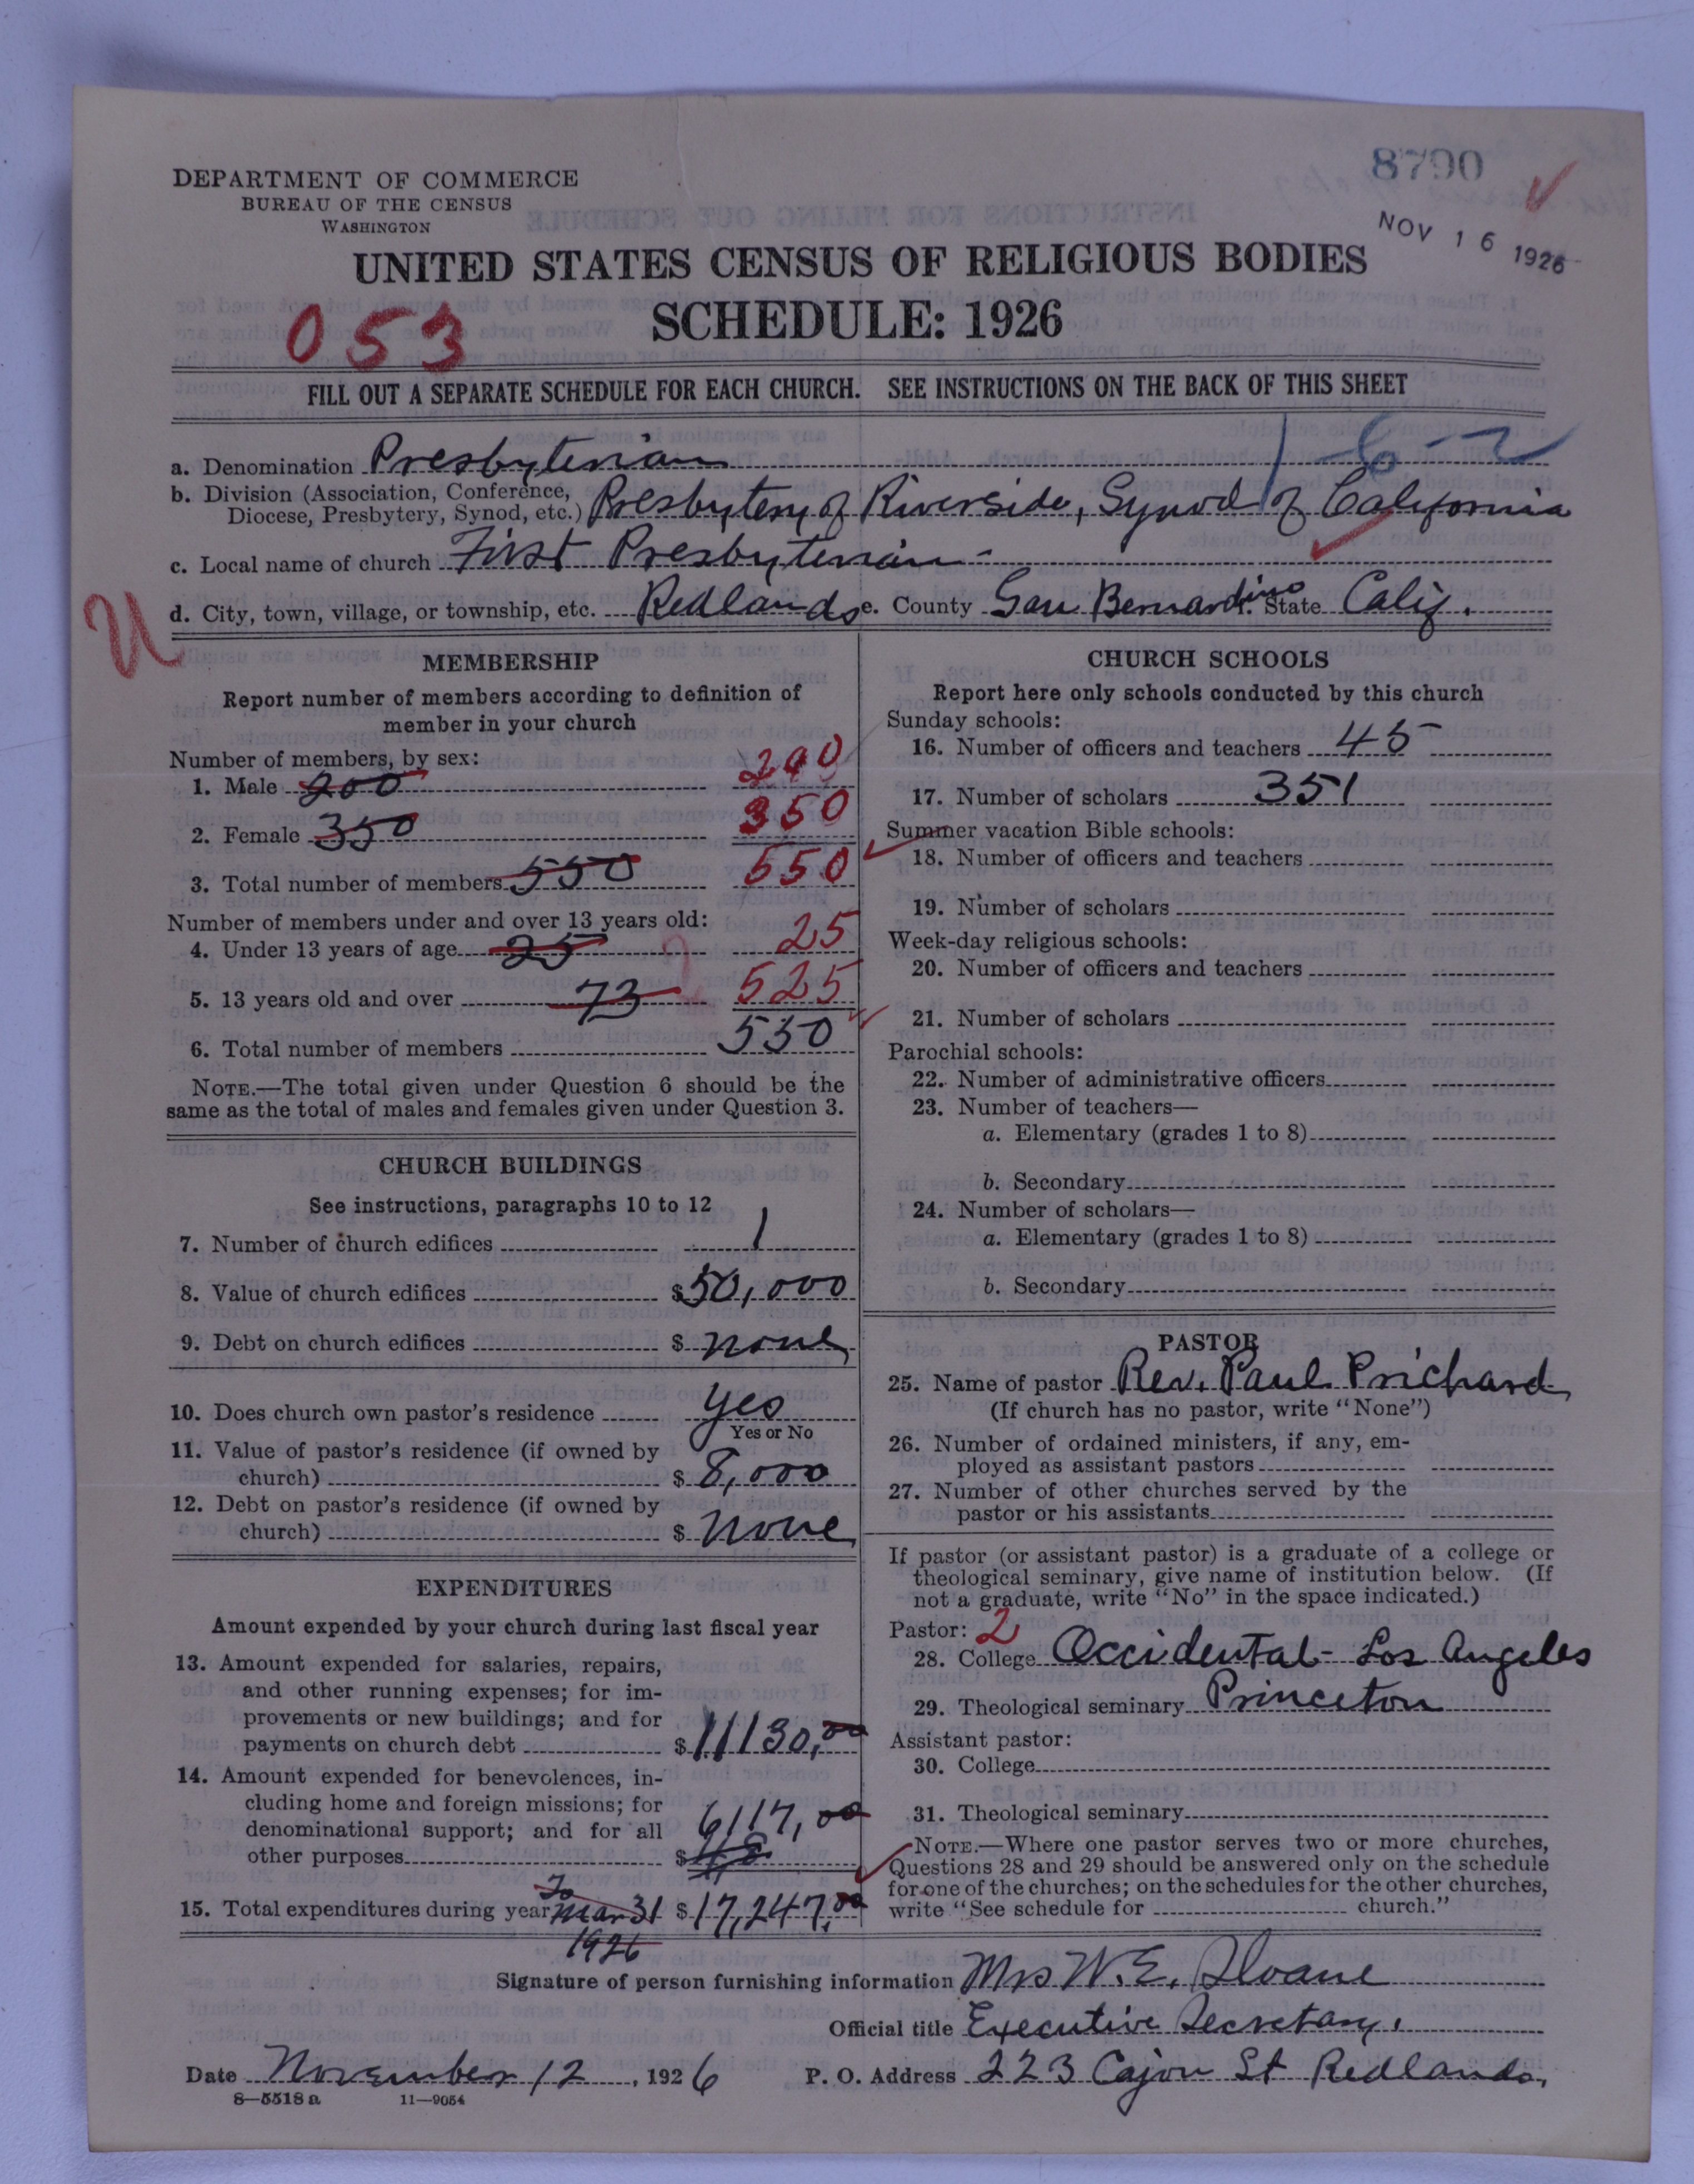 8790
NOV 16 1926
DEPARTMENT OF COMMERCE
BUREAU OF THE CENSUS
WASHINGTON
UNITED STATES CENSUS OF RELIGIOUS BODIES
SCHEDULE: 1926
053
FILL OUT A SEPARATE SCHEDULE FOR EACH CHURCH. SEE INSTRUCTIONS ON THE BACK OF THIS SHEET
1-6-2
a. Denomination Presbyterian
b. Division (Association, Conference, Diocese, Presbytery, Synod, etc.) Presbytery of Riverside, Synod of California
c. Local name of church First Presbyterian
U
d. City, town, village, or township, etc. Redlands e. County San Bernardino f. State Calif.
MEMBERSHIP
Report number of members according to definition of
member in your church
Number of members, by sex:
1. Male 200 200
2. Female 350 350
3. Total number of members 550 550
Number of members under and over 13 years old:
4. Under 13 years of age 25 25
5. 13 years old and over 73 525
6. Total number of members 550
NOTE.—The total given under Question 6 should be the
same as the total of males and females given under Question 3.
CHURCH BUILDINGS
See instructions, paragraphs 10 to 12
7. Number of church edifices 1
8. Value of church edifices $50,000
9. Debt on church edifices $ none
10. Does church own pastor's residence Yes
Yes or No
11. Value of pastor's residence (if owned by
church) $ 8,000
12. Debt on pastor's residence (if owned by
church) $ None
EXPENDITURES
Amount expended by your church during last fiscal year
13. Amount expended for salaries, repairs,
and other running expenses; for im-
provements or new buildings; and for
payments on church debt $ 11130,00
14. Amount expended for benevolences, in-
cluding home and foreign missions; for
denominational support; and for all 6117,00
other purposes $
15. Total expenditures during year To Mar 31 1926 $ 17,247,00
CHURCH SCHOOLS
Report here only schools conducted by this church
Sunday schools:
16. Number of officers and teachers 45
17. Number of scholars 351
Summer vacation Bible schools:
18. Number of officers and teachers
19. Number of scholars
Week-day religious schools:
20. Number of officers and teachers
21. Number of scholars
Parochial schools:
22. Number of administrative officers
23. Number of teachers—
a. Elementary (grades 1 to 8)
b. Secondary
24. Number of scholars—
a. Elementary (grades 1 to 8)
b. Secondary
PASTOR
25. Name of pastor Rev. Paul Prichard
(If church has no pastor, write "None")
26. Number of ordained ministers, if any, em-
ployed as assistant pastors
27. Number of other churches served by the
pastor or his assistants
If pastor (or assistant pastor) is a graduate of a college or
theological seminary, give name of institution below. (If
not a graduate, write "No" in the space indicated.)
Pastor: 2
28. College Occidental - Los Angeles
29. Theological seminary Princeton
Assistant pastor:
30. College
31. Theological seminary
NOTE.—Where one pastor serves two or more churches,
Questions 28 and 29 should be answered only on the schedule
for one of the churches; on the schedules for the other churches,
write "See schedule for church."
Signature of person furnishing information Mrs W. E. Sloane
Official title Executive Secretary.
Date November 12, 1926 P. O. Address 223 Cajon St Redlands.
8—5518 a 11—9054